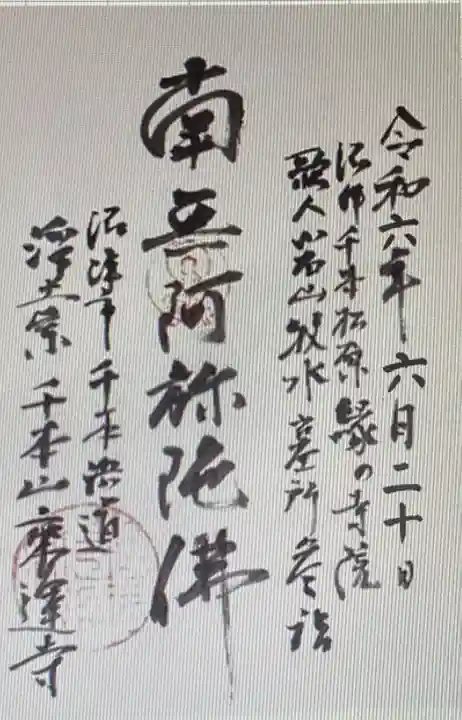 令和六年六月二十日
沼津千本松原縁の寺院
歌人若山牧水墓所参詣
南無阿弥陀佛
沼津市千本緑道
浄土宗千本山乗運寺